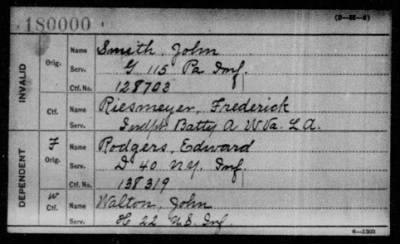 180000
(D-3-6)
INVALID
Orig.
Name Smith, John
Serv. G 115 Pa Inf.
Ctf. No. 128703
Ctf.
Name Riesmeyer, Frederick
Serv. Indpt Batty A W Va. L A.
DEPENDENT
F
Orig.
Name Rodgers, Edward
Serv. D 40 N.Y. Inf.
Ctf. No. 138319
W
Ctf.
Name Walton, John
Serv. H 22 U.S. Inf.